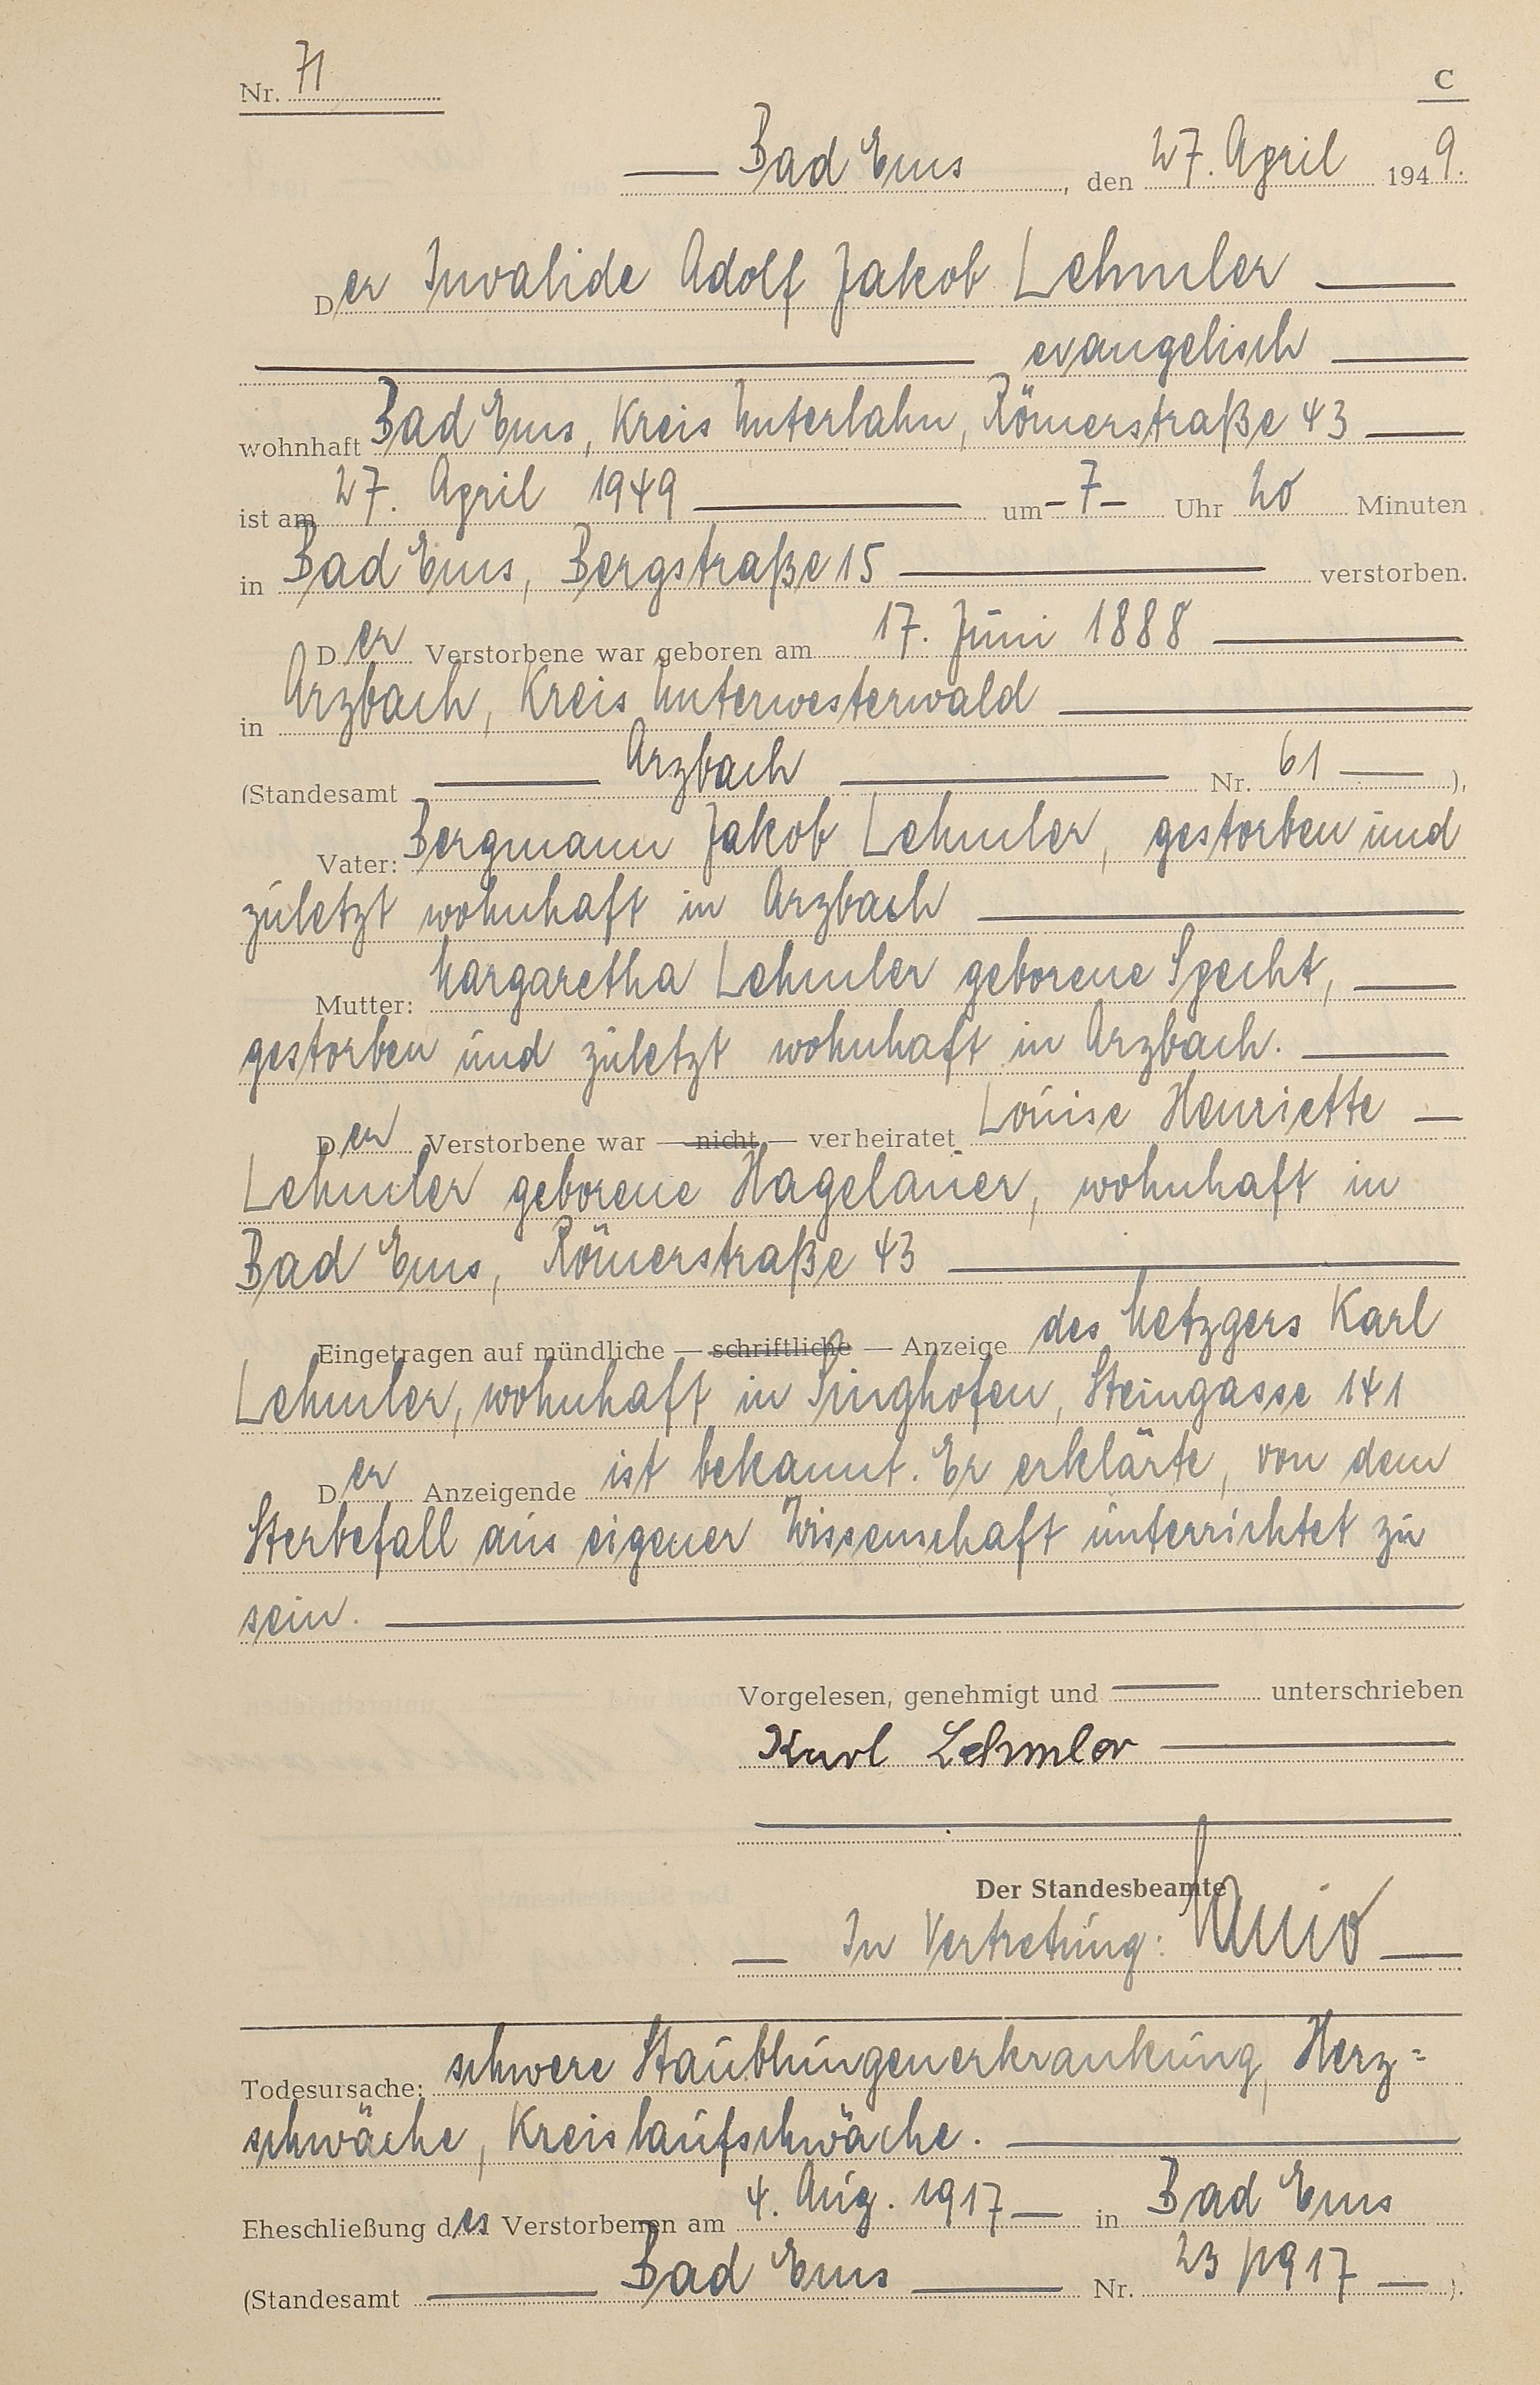 Nr. 71
C
Bad Ems, den 27. April 1949.
Der Invalide Adolf Jakob Lehmler
evangelisch
wohnhaft Bad Ems, Kreis Unterlahn, Römerstraße 43
ist am 27. April 1949 um -7- Uhr 20 Minuten
in Bad Ems, Bergstraße 15 verstorben.
Der Verstorbene war geboren am 17. Juni 1888
in Arzbach, Kreis Unterwesterwald
(Standesamt Arzbach Nr. 61 ),
Vater: Bergmann Jakob Lehmler, gestorben und
zuletzt wohnhaft in Arzbach
Mutter: Margaretha Lehmler geborene Specht,
gestorben und zuletzt wohnhaft in Arzbach.
Der Verstorbene war — nicht — verheiratet Louise Henriette
Lehmler geborene Hagelauer, wohnhaft in
Bad Ems, Römerstraße 43
Eingetragen auf mündliche — schriftliche — Anzeige des Metzgers Karl
Lehmler, wohnhaft in Singhofen, Steingasse 141
Der Anzeigende ist bekannt. Er erklärte, von dem
Sterbefall aus eigener Wissenschaft unterrichtet zu
sein.
Vorgelesen, genehmigt und unterschrieben
Karl Lehmler
Der Standesbeamte
In Vertretung:
Todesursache: schwere Staublungenerkrankung, Herz=
schwäche, Kreislaufschwäche.
Eheschließung des Verstorbenen am 4. Aug. 1917 in Bad Ems
(Standesamt Bad Ems Nr. 23/1917 ).